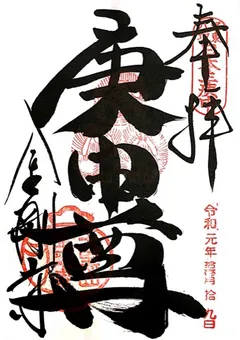 奉拝
庚申尊
金剛寺
令和元年
拾九日